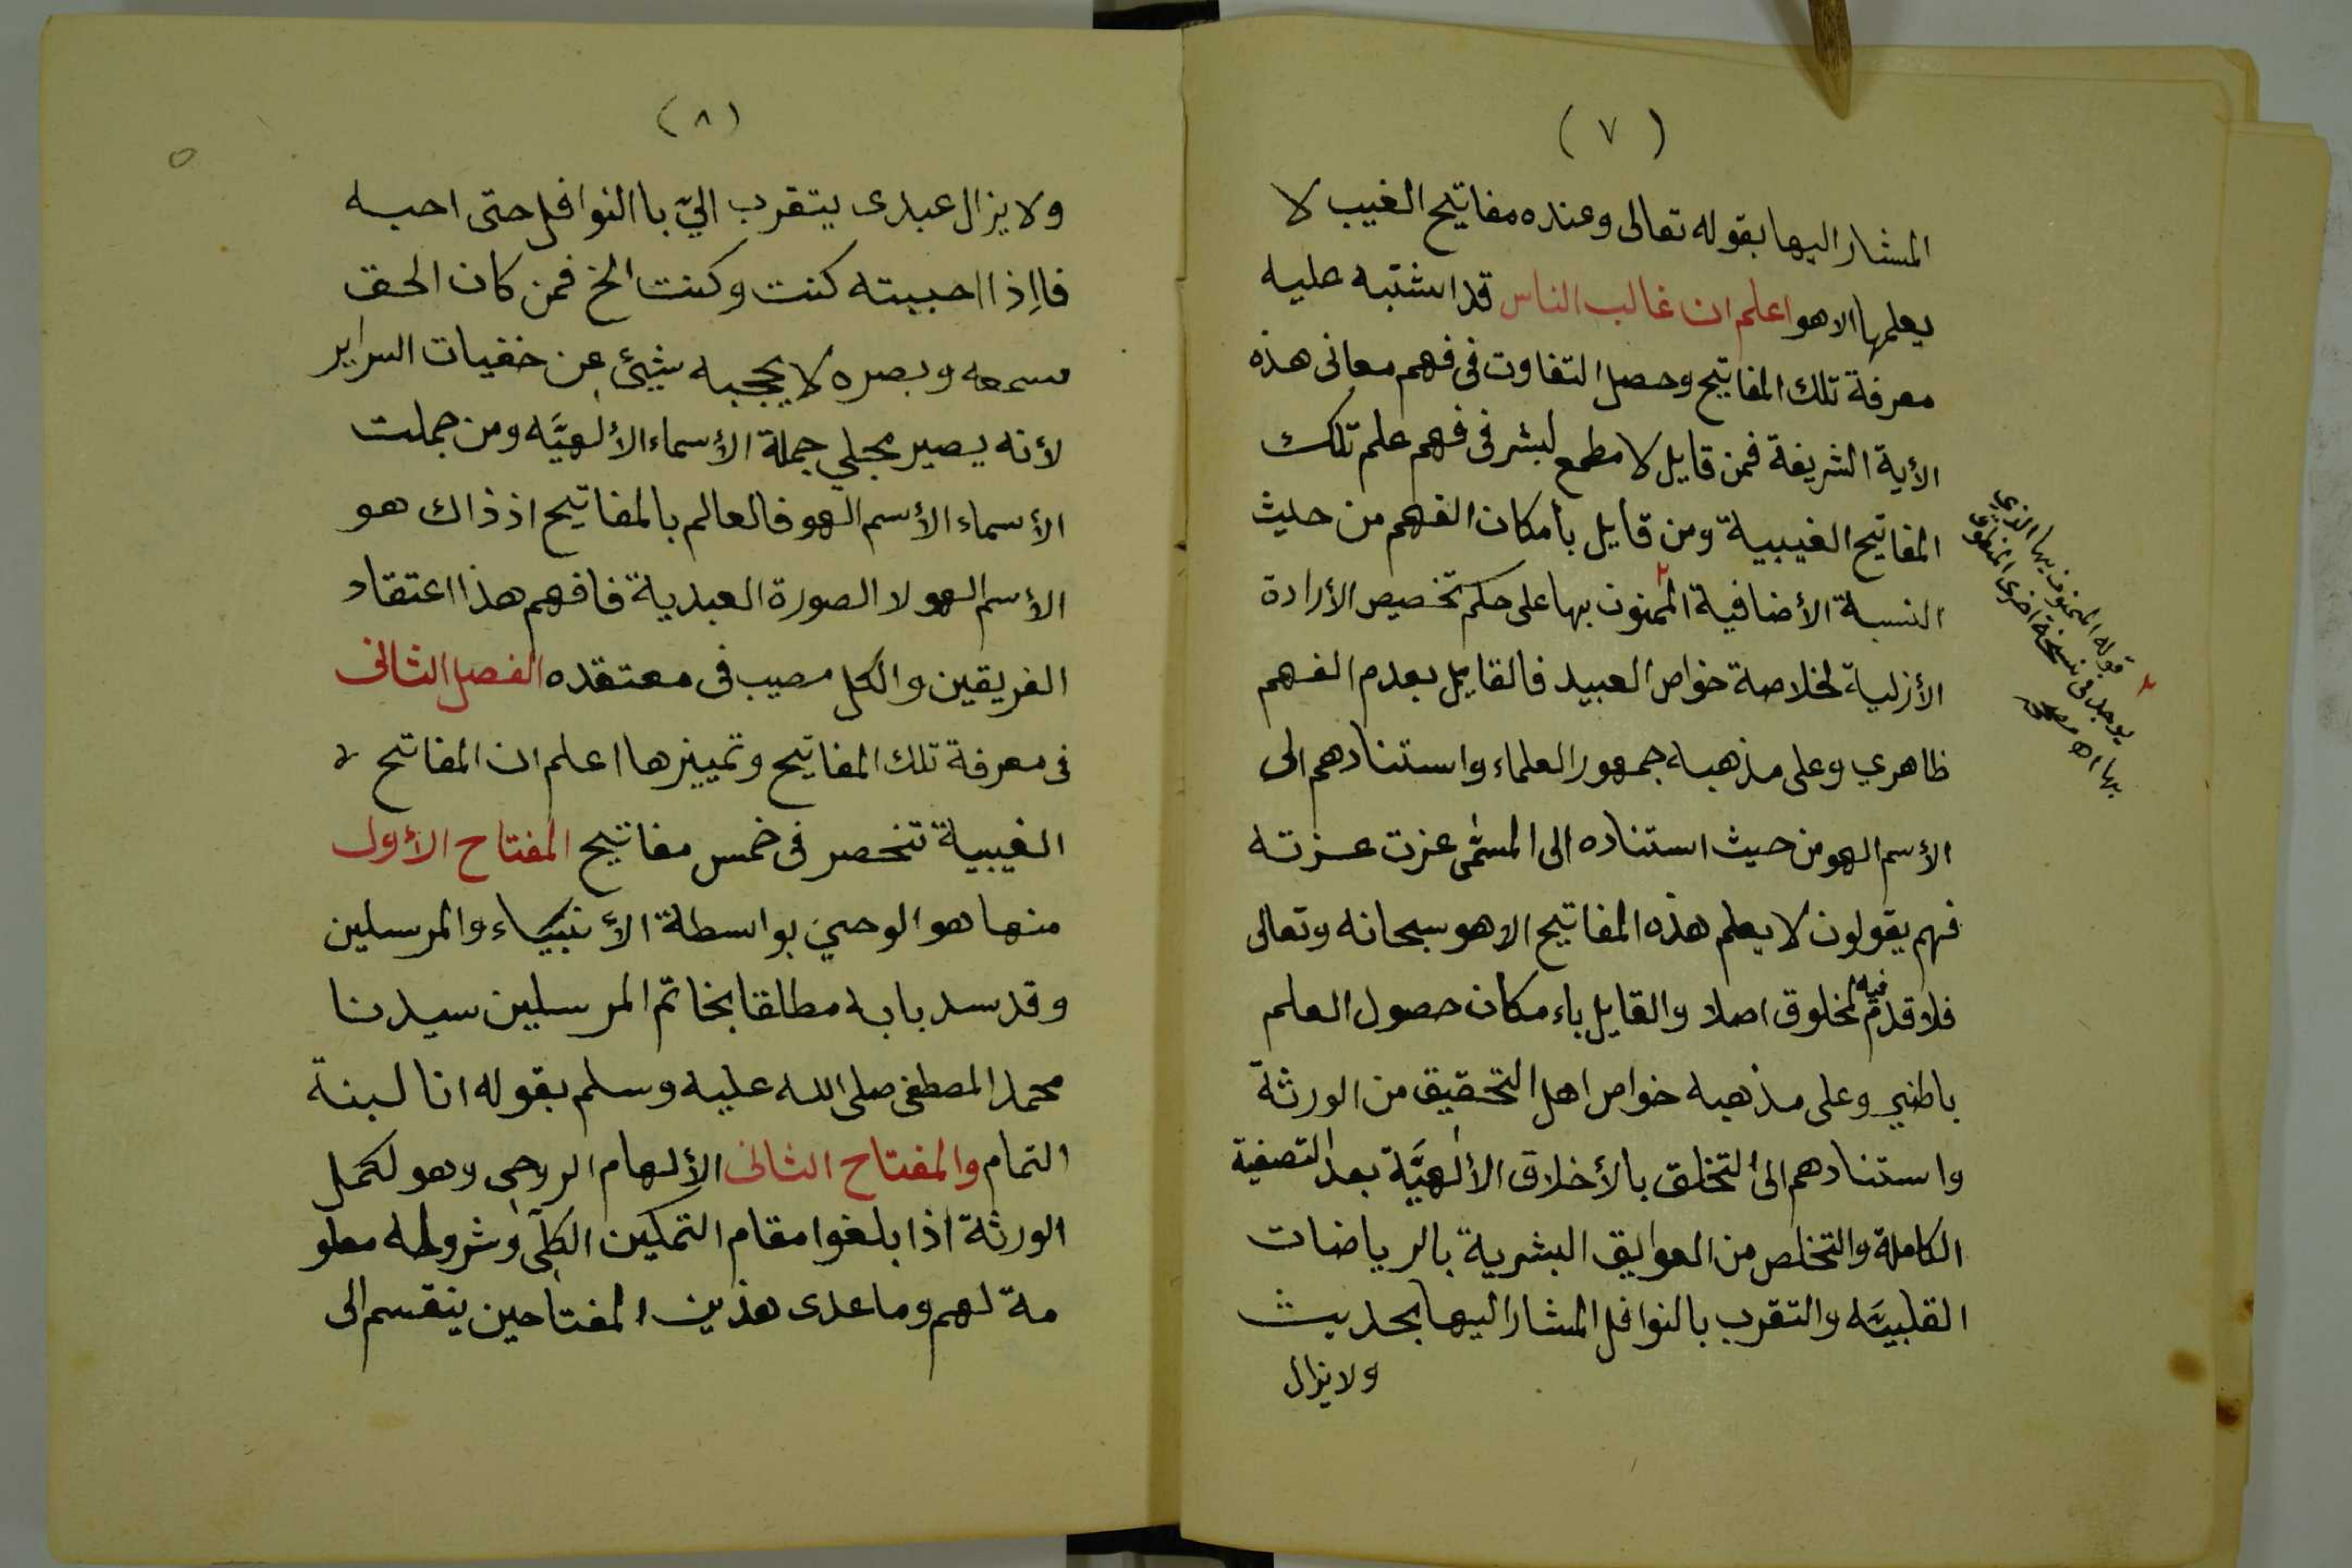 (٧)
المشار اليها بقوله تعالى وعنده مفاتيح الغيب لا
يعلمها الا هو اعلم ان غالب الناس قد اشتبه عليه
معرفة تلك المفاتيح وحصل التفاوت فى فهم معانى هذه
الأية الشريفة فمن قايل لا مطمع لبشر فى فهم علم تلك
المفاتيح الغيبية ومن قايل بأمكان الفهم من حيث
النسبة الأضافية الممنون بها على حكم تخصيص الأرادة
الأزلية لخلاصة خواص العبيد فالقايل بعدم الفهم
ظاهري وعلى مذهبه جمهور العلماء واستنادهم الى
الأسم الهو من حيث استناده الى المسمّى عزت عزته
فهم يقولون لا يعلم هذه المفاتيح الا هو سبحانه وتعالى
فلا قدم فيه لمخلوق اصلا والقايل باءمكان حصول العلم
باطني وعلى مذهبه خواص اهل التحقيق من الورثة
واستنادهم الى التخلق بالأخلاق الألهيَّة بعد التصفية
الكاملة والتخلص من العوايق البشرية بالرياضات
القلبيَّه والتقرب بالنوافل المشار اليها بحديث
ولا يزال
٢ قوله الممنون بها الذي
يوجد فى نسخة اخرى
بها اه
(٨)
ولا يزال عبدى يتقرب اليّ باالنوافل حتى احبه
فااِذا احببته كنت وكنت الخ فمن كان الحق
سمعه وبصره لا يحجبه شيئ عن خفيات السراير
لأنه يصير مجلي جملة الأسماء الألهيَّه ومن جملت
الأسماء الأسم الهو فالعالم بالمفاتيح اذ ذاك هو
الأسم الهو لا الصورة العبدية فافهم هذا اعتقاد
الفريقين والكل مصيب فى معتقده الفصل الثانى
فى معرفة تلك المفاتيح وتمييزها اعلم ان المفاتح لا
الغيبية تنحصر فى خمس مفاتيح المفتاح الأول
منها هو الوحي بواسطة الأنبياء والمرسلين
وقد سد بابه مطلقا بخاتم المرسلين سيدنا
محمد المصطفى صلى الله عليه وسلم بقوله انا لبنة
التمام والمفتاح الثانى الألهام الروحي وهو لكمل
الورثة اذا بلغوا مقام التمكين الكلّي وشروطه معلو
مة لهم وما عدى هذين المفتاحين ينقسم الى